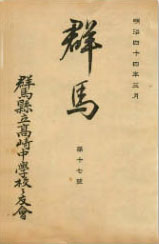 明治四十四年三月
群馬
第十七號
群馬縣立高崎中學校々友會